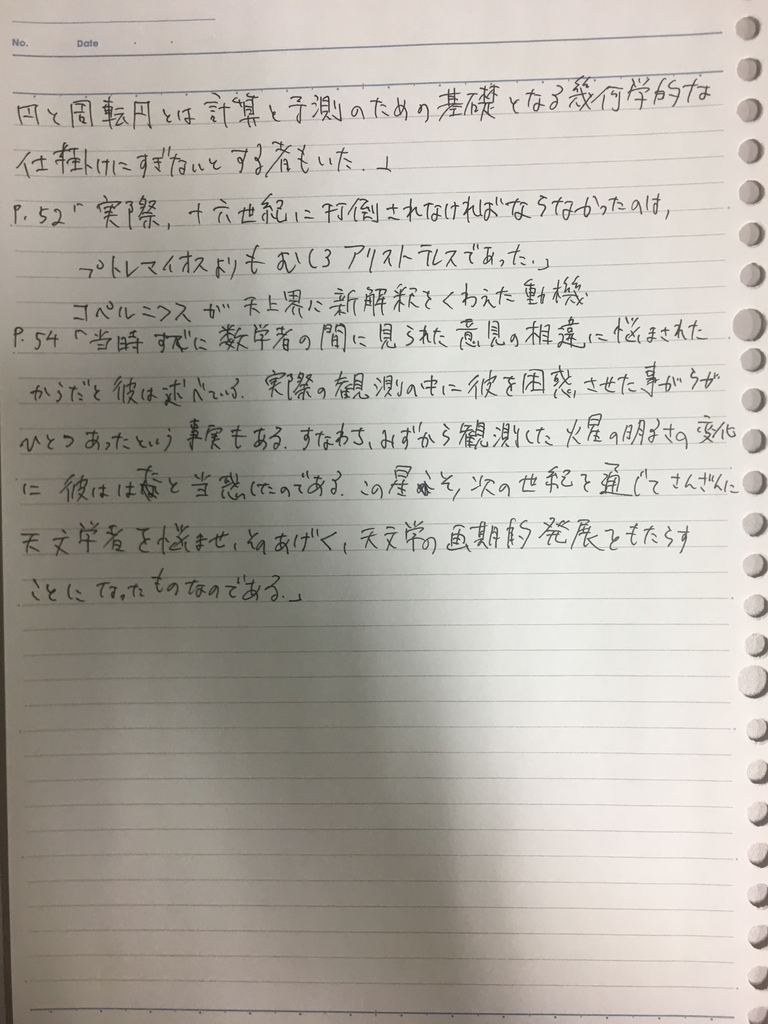 No. Date ・ ・
円と周転円とは計算と予測のための基礎となる幾何学的な
仕掛けにすぎないとする者もいた。」
P.52「実際,十六世紀に打倒されなければならなかったのは,
プトレマイオスよりもむしろアリストテレスであった。」
コペルニクスが天上界に新解釈をくわえた動機
P.54「当時すでに数学者の間に見られた意見の相違に悩まされた
からだと彼は述べている。実際の観測の中に彼を困惑させた事がらが
ひとつあったという事実もある。すなわち、みずから観測した火星の明るさの変化
に彼ははたと当惑したのである。この星こそ,次の世紀を通じてさんざんに
天文学者を悩ませ、そのあげく、天文学の画期的発展をもたらす
ことになったものなのである。」